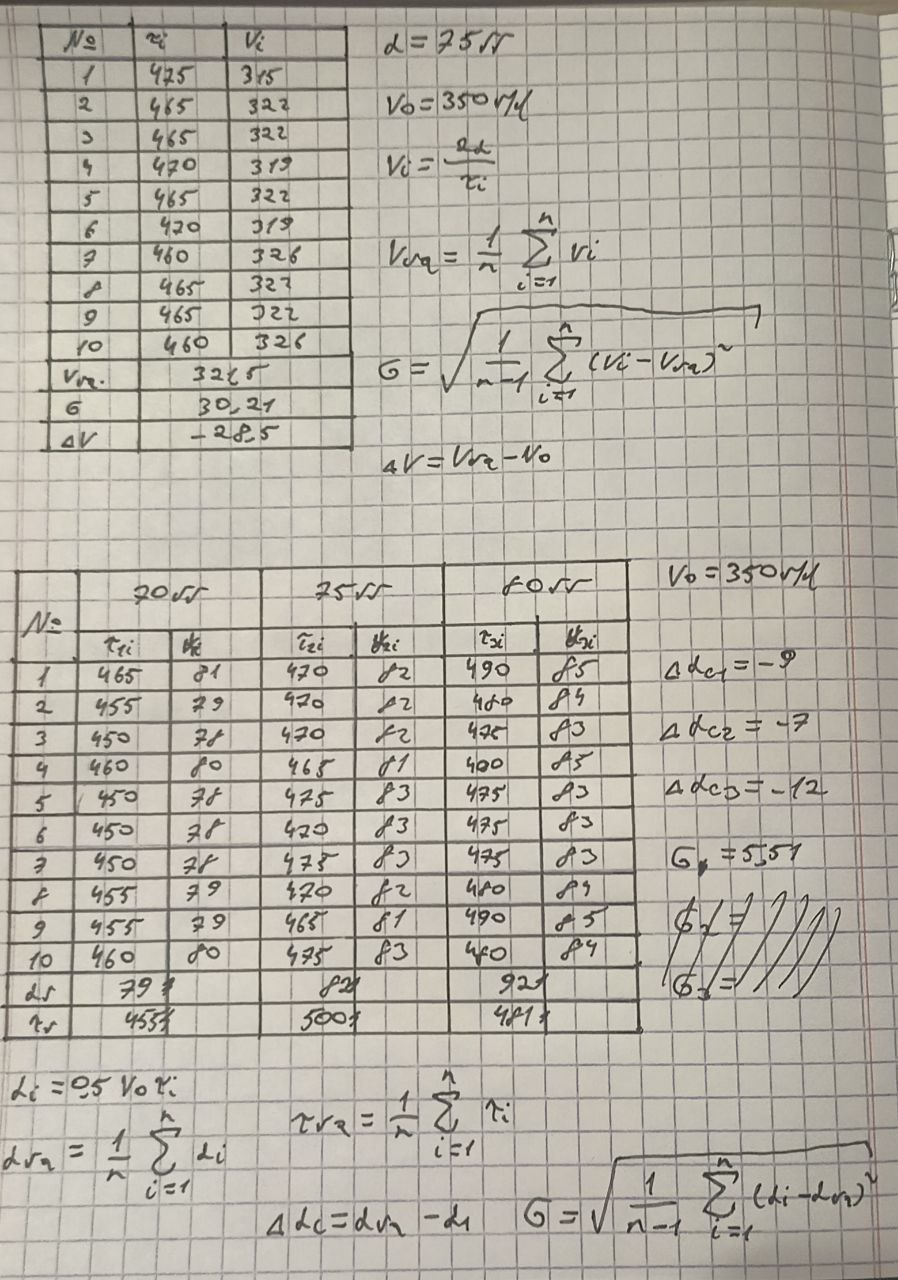 № τi Vi
1 475 315
2 465 322
3 465 322
4 470 319
5 465 322
6 470 319
7 460 326
8 465 322
9 465 322
10 460 326
Vср. 321,5
σ 30,21
ΔV -28,5
d = 75 см
V₀ = 350 м/с
Vi = 2d/τi
Vср = 1/n Σ(i=1..n) Vi
σ = √(1/(n-1) Σ(i=1..n) (Vi - Vср)²)
ΔV = Vср - V₀
№ 70 см 75 см 80 см
τ1i τ2i d2i τ3i d3i
1 465 81 470 82 490 85
2 455 79 470 82 480 84
3 450 78 470 82 475 83
4 460 80 465 81 85
5 450 78 475 83 475 83
6 450 78 470 83 475 83
7 450 78 475 83 475 83
8 455 79 470 82 480 84
9 455 79 465 81 490 85
10 460 80 475 83 480 84
79 82 92
455 500 481
V₀ = 350 м/с
Δdc1 = -9
Δdc2 = -7
Δdc3 = -12
σ = 5,51
di = 0,5 V₀ τi
τср = 1/n Σ(i=1..n) τi
dср = 1/n Σ(i=1..n) di
Δdc = dср - d1
σ = √(1/(n-1) Σ(i=1..n) (di - dср)²)